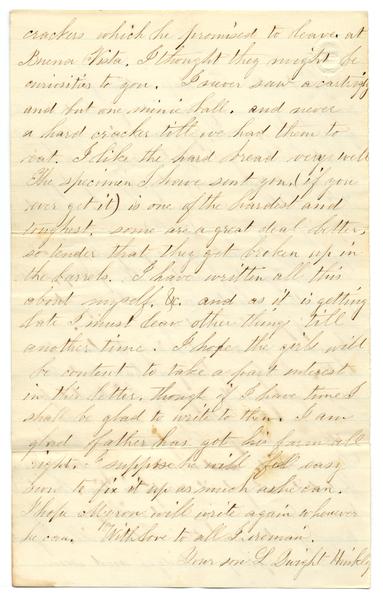 crackers which he promised to leave at
Buena Vista. I thought they might be
curiosities to you. I never saw a cartridge
and but one minie ball. and never
a hard cracker till we had them to
eat. I like the hard bread very well
The specimen I have sent you, (if you
ever get it) is one of the hardest and
toughest. some are a great deal better,
so tender that they get broken up in
the barrels. I have written all this
about myself. &c. and as it is getting
late I must leave other things till
another time. I hope the girls will
be content to take a part interest
in this letter, though if I have time I
shall be glad to write to them. I am
glad father has got his farm all
right. I suppose he will feel easy
now to fix it up as much as he can.
I hope Myron will write again whenever
he can. With love to all I remain.
Your son L Dwight Hinkly